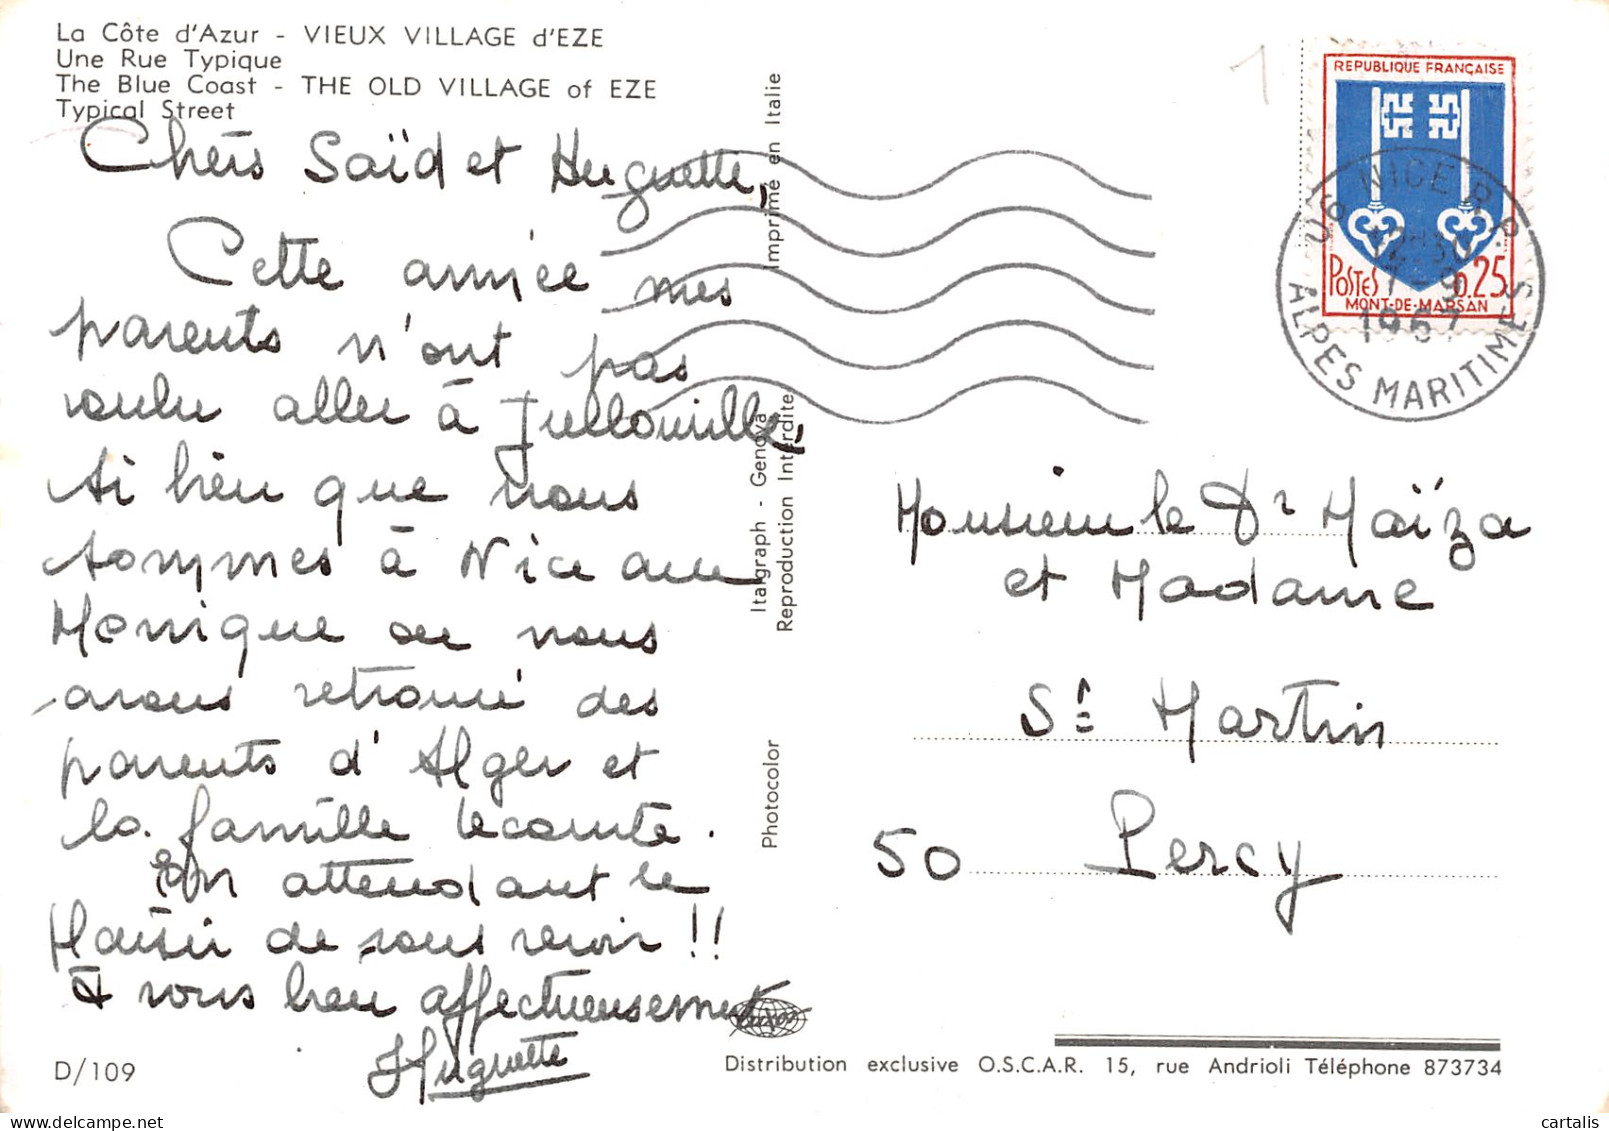 La Côte d'Azur - VIEUX VILLAGE d'EZE
Une Rue Typique
The Blue Coast - THE OLD VILLAGE of EZE
Typical Street
Chers Saïd et Huguette,
Cette année mes
parents n'ont pas
voulu aller à Jullouville,
si bien que nous
sommes à Nice avec
Monique où nous
avons retrouvé des
parents d'Alger et
la famille Lecomte.
En attendant le
plaisir de vous revoir !!
à vous bien affectueusement
Huguette
D/109
Imprimé en Italie
Itagraph - Genova
Reproduction Interdite
Photocolor
Distribution exclusive O.S.C.A.R. 15, rue Andrioli Téléphone 873734
REPUBLIQUE FRANÇAISE
POSTES 0.25
MONT-DE-MARSAN
NICE R.P.
7-9
1967
ALPES MARITIMES
Monsieur le Dr Maïza
et Madame
St Martin
50 Percy
cartalis